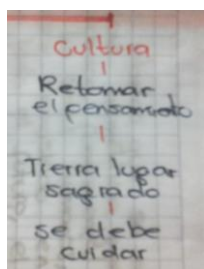 Cultura
Retomar
el pensamiento
Tierra lugar
sagrado
se debe
cuidar